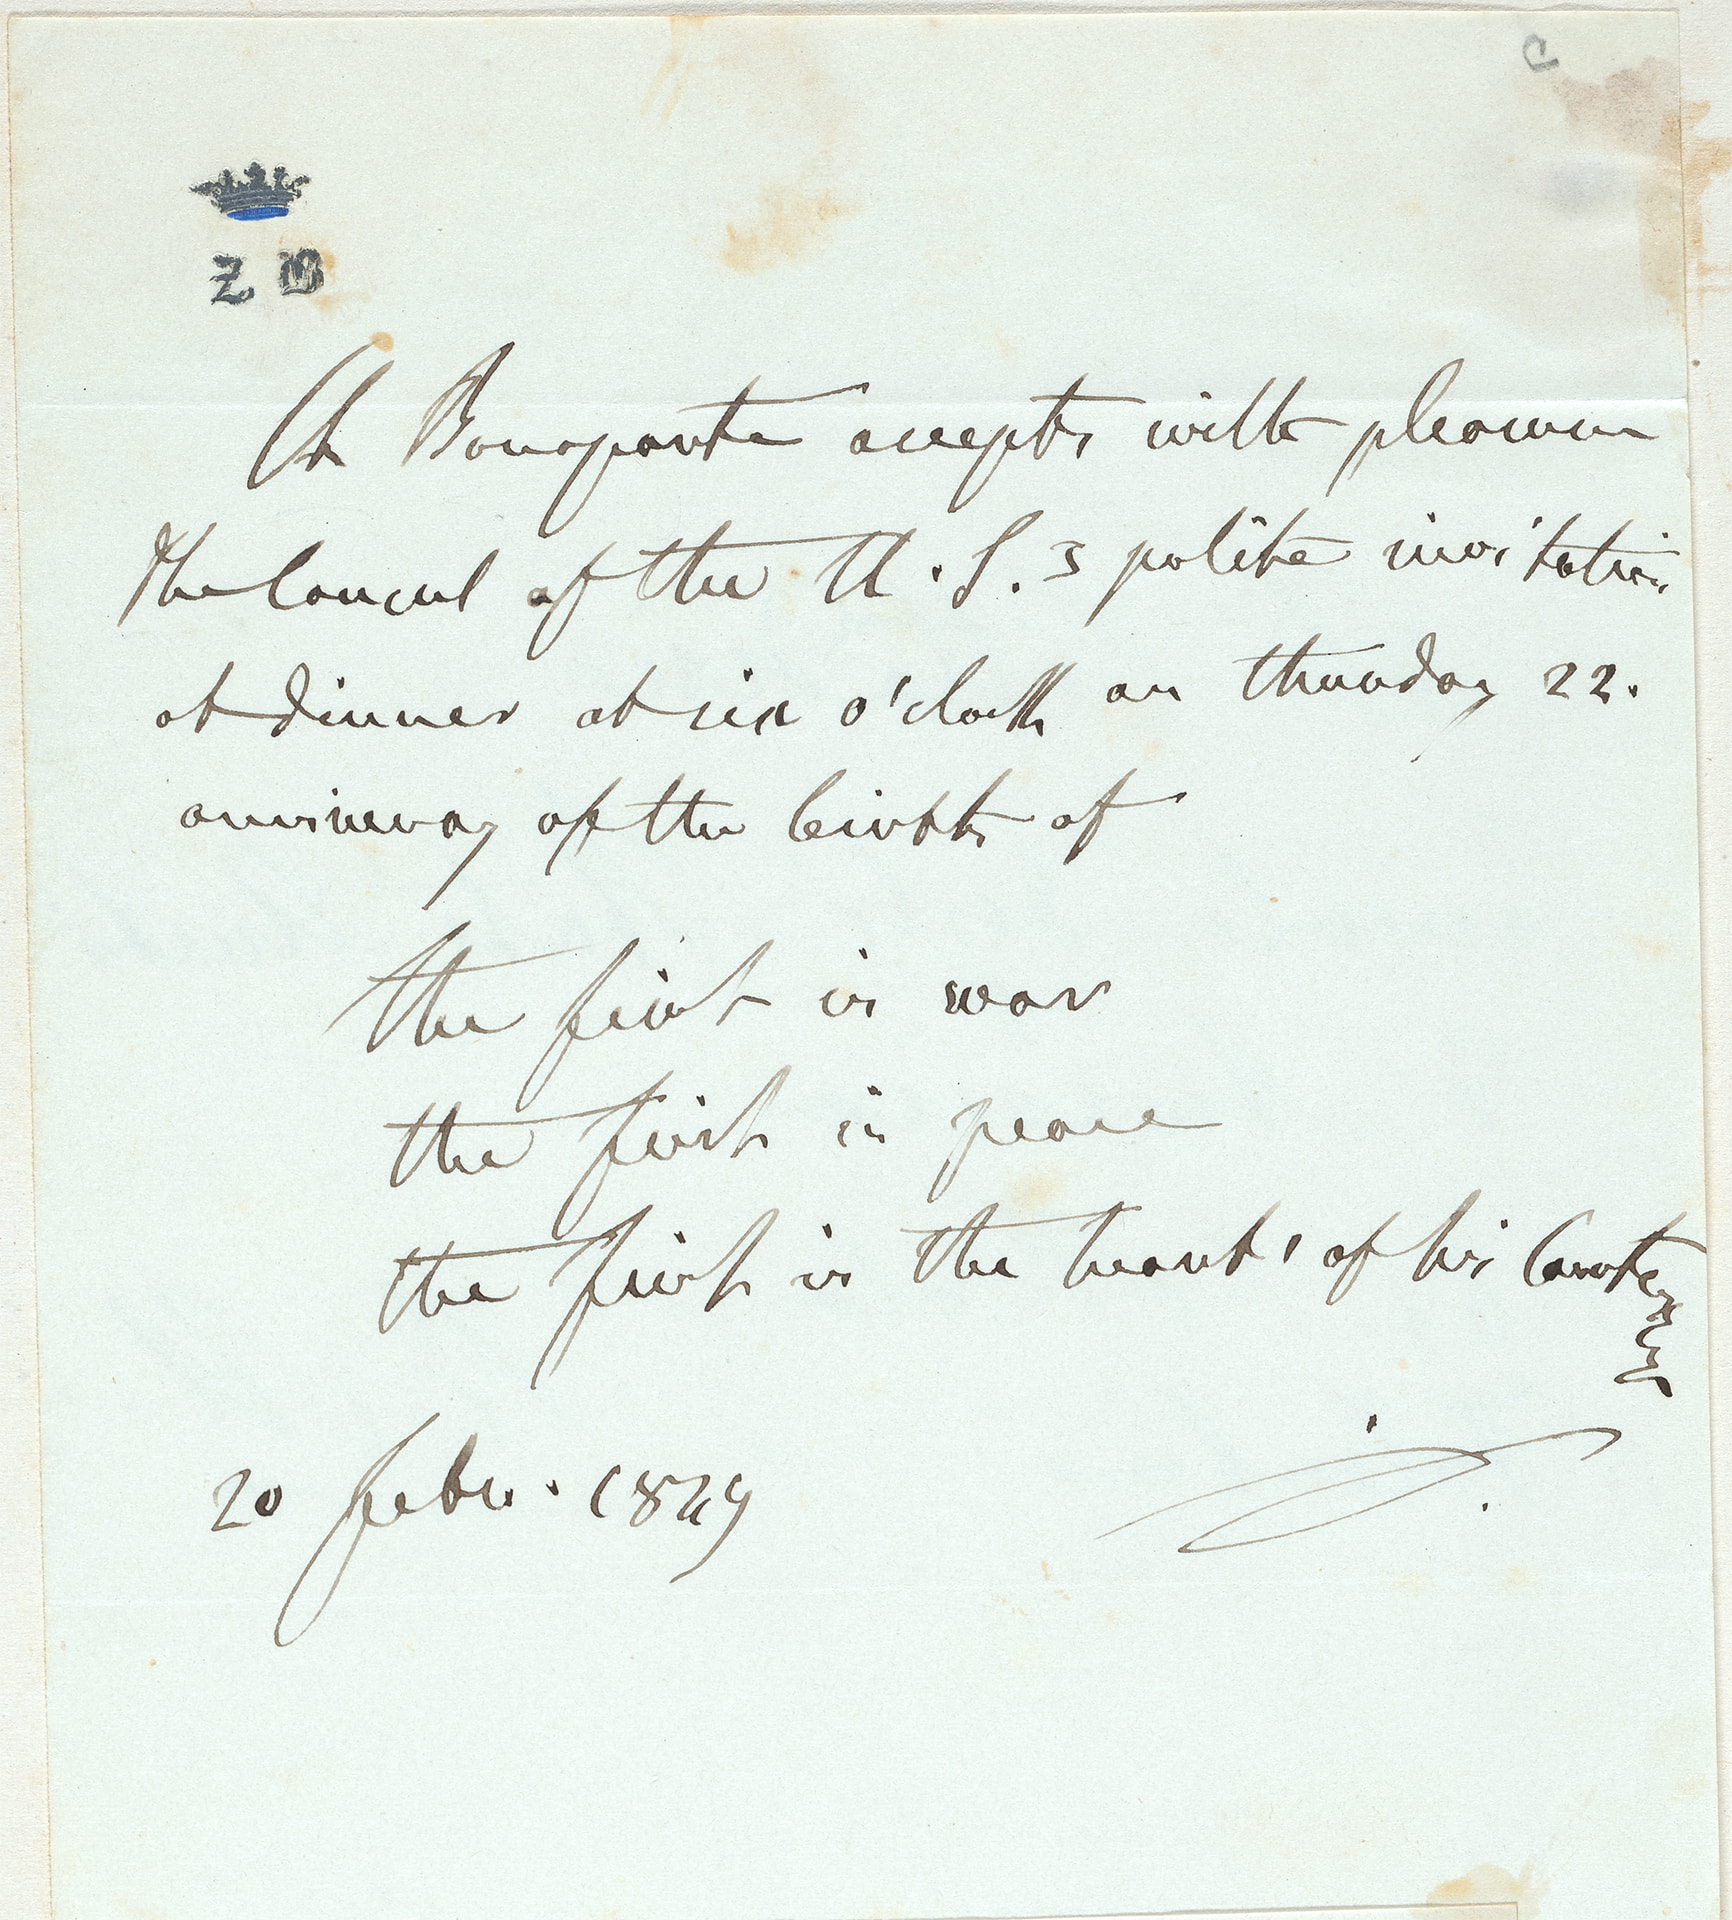 C
Z B
Ch Bonaparte accepts with pleasure
the Consul of the U.S.s polite invitation
at dinner at six o'clock on thursday 22.
anniversary of the birth of
the first in war
the first in peace
the first in the heart's of his Country
men
20 febr. 1849